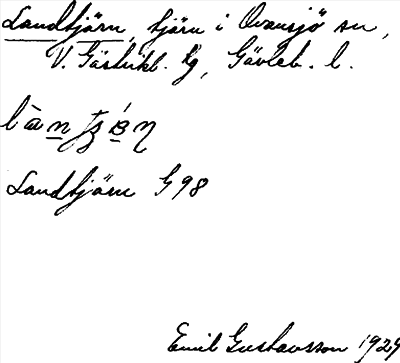 Landtjärn, tjärn i Ovansjö sn,
V. Gästrikl. tg, Gävleb. l.
Landtjärn G98
Emil Gustavsson 1929